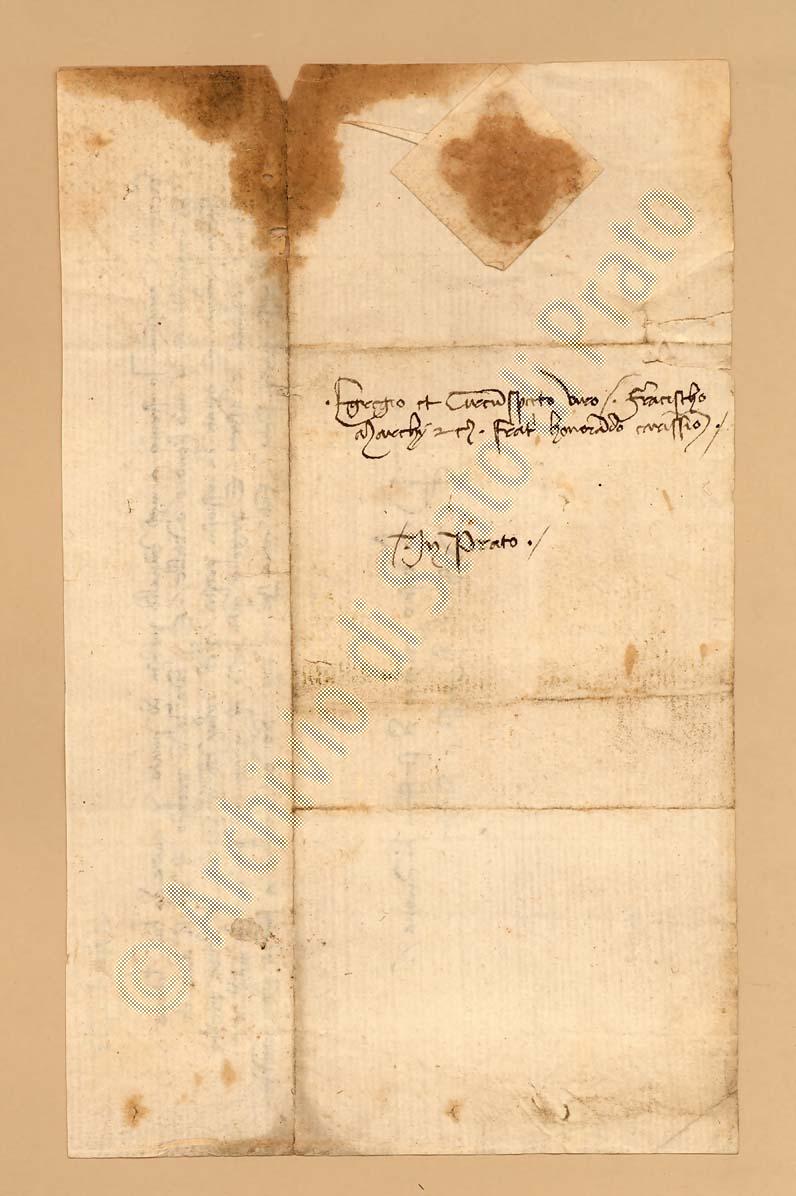 · Egregio et Circu̅specto viro /. Fra̅cischo
Marchi & c̅. Frat̅ honora̅do carissi̅o ·/
· In Prato ·/
© Archivio di Stato di Prato